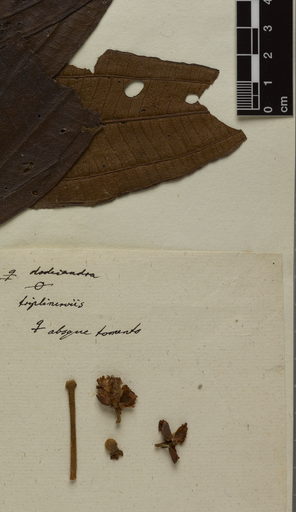 0 1 2 3 4
cm
♀ dodecandra
triplinerviis
♀ absque tomento